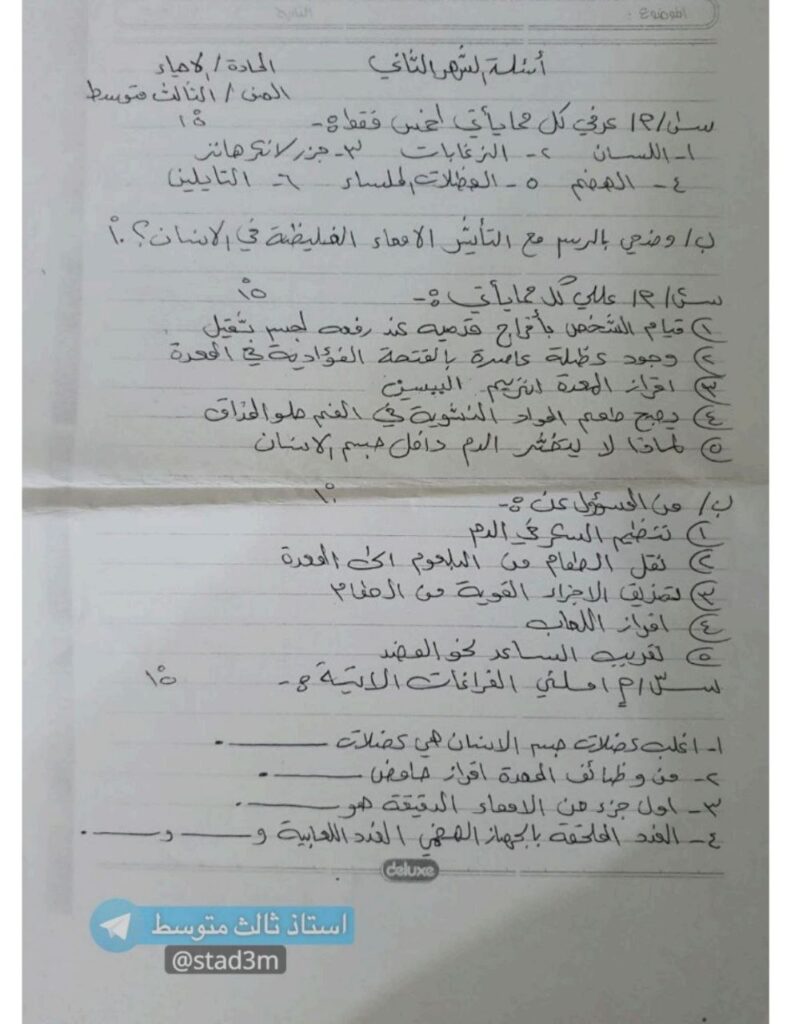 الموضوع : التاريخ
أسئلة الشهر الثاني المادة / الاحياء
الصف / الثالث متوسط
س١/ P١ عرفي كل مما يأتي لخمس فقط :- ١٥
١- اللسان ٢- الزغابات ٣- جزر لانكرهانز
٤- الهضم ٥- العظلات الملساء ٦- التايلين
ب/ وضحي بالرسم مع التأشير الامعاء الغليظة في الانسان ؟ ١٠
س٢/ P١ عللي كل مما يأتي :- ١٥
١ قيام الشخص بأفراج قدميه عند رفعه لجسم ثقيل
٢ وجود عظلة عاصرة بالفتحة الفؤادية في المعدة
٣ افراز المعدة انزيم الببسين
٤ يصبح طعم المواد النشوية في الفم حلو المذاق
٥ لماذا لا يتخثر الدم داخل جسم الانسان
ب/ من المسؤول عن :- ١٠
١ تنظيم السكر في الدم
٢ نقل الطعام من البلعوم الى المعدة
٣ تمزيق الاجزاء القوية من الطعام
٤ افراز اللعاب
٥ تقريب الساعد نحو العضد
س٣/ P املئي الفراغات الاتية :- ١٥
١- اغلب عضلات جسم الانسان هي عضلات ـــــــ .
٢- من وظائف المعدة افراز حامض ـــــــ .
٣- اول جزء من الامعاء الدقيقة هو ـــــــ .
٤- الغدد الملحقة بالجهاز الهضمي الغدد اللعابية و ـــــــ و ـــــــ .
deluxe
استاذ ثالث متوسط
@stad3m